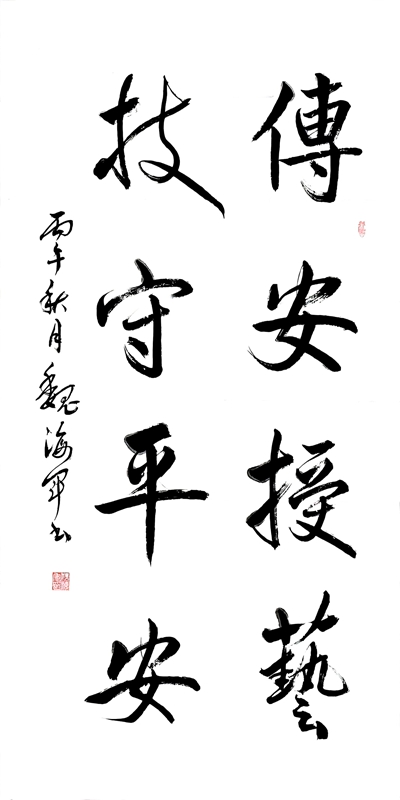 傳安授藝
技守平安
丙午秋月魏海军书